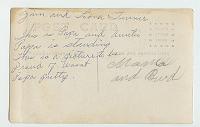 and Turner
This is Papa and Auntie
Papa is standing
This is a picture to be
Proud of Wasnt
Papa pretty
Mama
and Bud